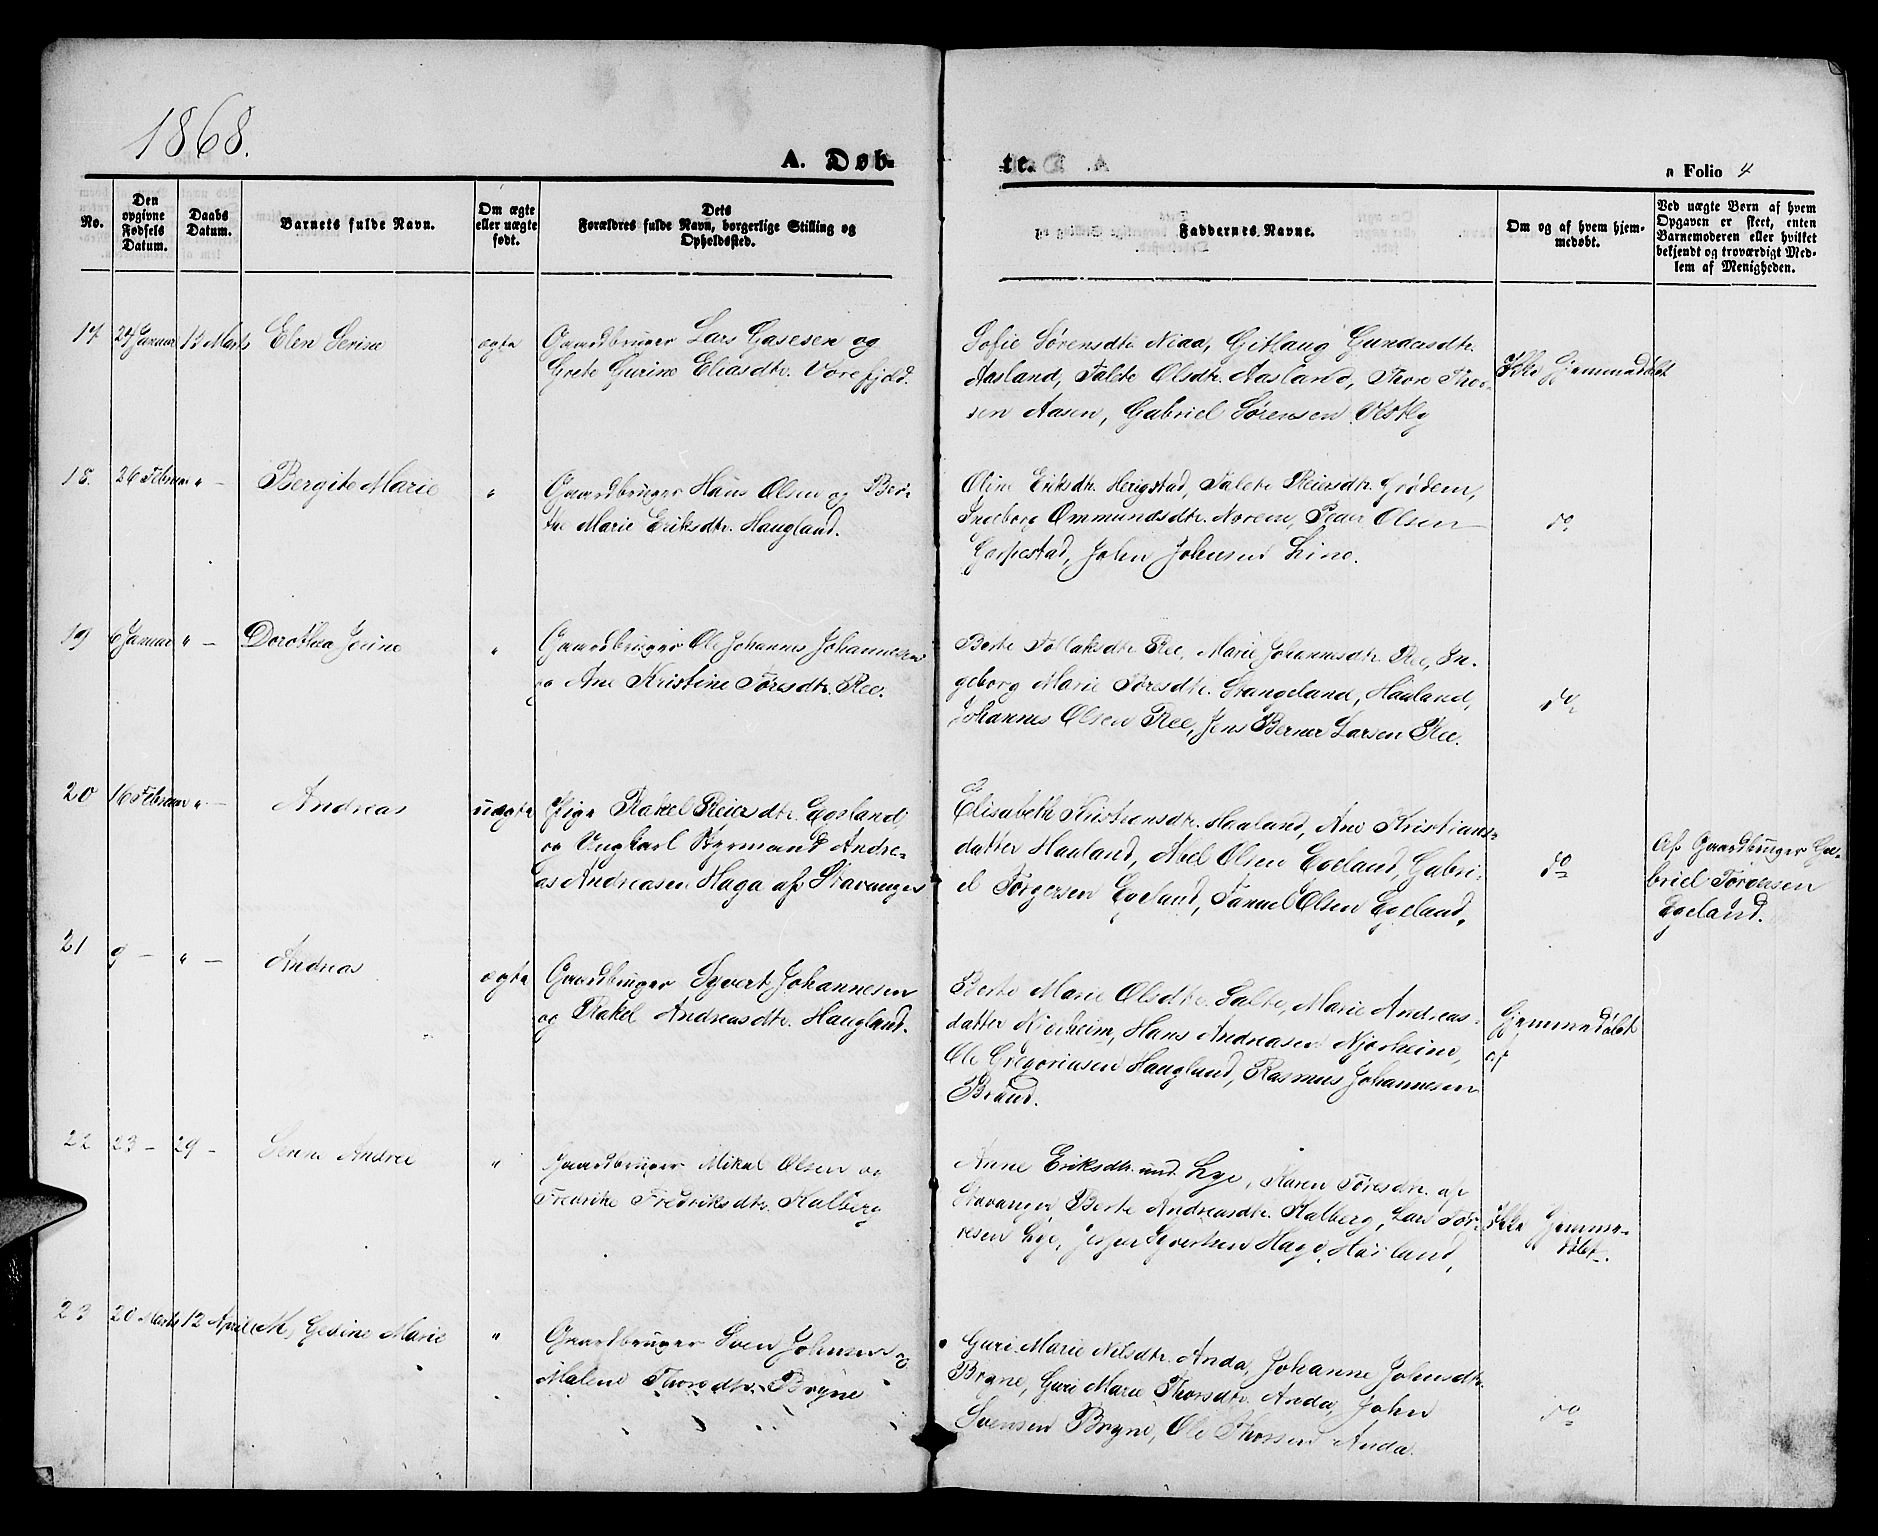 1868.
A. Døb-
te.
a Folio 4
No.
Den
opgivne
Fødsels
Datum.
Daabs
Datum.
Barnets fulde Navn.
Om ægte
eller uægte
født.
Dets
Forældres fulde Navn, borgerlige Stilling og
Opholdssted.
Faddernes Navne.
Om og af hvem hjem-
medøbt.
Ved uægte Børn af hvem
Opgaven er skeet, enten
Barnemoderen eller hvilket
bekjendt og troværdigt Med-
lem af Menigheden.
17 24 Januar 13 Marts Elen Serine ægte Gaardbruger Lars Gasesen og
Grete Gurine Eliasdtr. Vorefjeld.
Sofie Sørensdtr. Niaa, Gitlaug Gundersdtr.
Aasland, Talete Olsdtr. Aasland, Thore Thor-
sen Aasen, Gabriel Sørensen Vestly
Ikke Hjemmedøbt
18. 26 Februar " — Bergite Marie " Gaardbruger Hans Olsen og Ber-
the Marie Eriksdtr. Haugland.
Oline Eriksdtr. Herigstad, Talete Reiersdtr. Grødem,
Ingeborg Ommundsdtr. Norem, Peder Olsen
Garpestad, John Johnsen Line.
do
19 6 Januar " — Dorothea Jorine " Gaardbruger Ole Johannes Johannesen
og Ane Kristine Toresdtr. Ree.
Berte Tollaksdtr. Ree, Marie Johannesdtr. Ree, In-
geborg Marie Toresdtr. Stangeland, Haaland,
Johannes Olsen Ree, Jens Berner Larsen Ree.
do
20 16 Februar " — Andreas uægte Pige Rakel Reiersdtr. Egeland,
og Ungkarl Styrmand Andre-
as Andreasen Haga af Stavanger
Elisabeth Kristiansdtr. Haaland, Ane Kristians-
datter Haaland, Abel Olsen Egeland, Gabri-
el Torgersen Egeland, Samuel Olsen Egeland.
do
Af Gaardbruger Ga-
briel Torgersen
Egeland.
21 9 — " — Andreas ægte Gaardbruger Syvert Johannesen
og Rakel Andreasdtr. Haugland.
Berte Marie Olsdtr. Salte, Marie Andreas-
datter Njærheim, Hans Andreasen Njærheim,
Ole Gregoriusen Haugland, Rasmus Johannesen
Braud.
Hjemmedøbt
af
22 23 — 29 — Andrea " Gaardbruger Mikal Olsen og
Fredrike Fredriksdtr. Kalberg
Anne Eriksdtr. und. Lye, Karen Toresdtr. af
Stavanger, Berte Andreasdtr. Kalberg, Lars Tor-
resen Lye, Jesper Syvertsen Hage, Haaland,
Ikke Hjemme-
døbt.
23 20 Marts 12 April M, Gesine Marie " Gaardbruger Sven Johnsen og
Malene Thorsdtr. Bryne
Guri Marie Nilsdtr. Anda, Johanne Johnsdtr.
Bryne, Guri Marie Thorsdtr. Anda, John
Svensen Bryne, Ole Thorsen Anda.
do